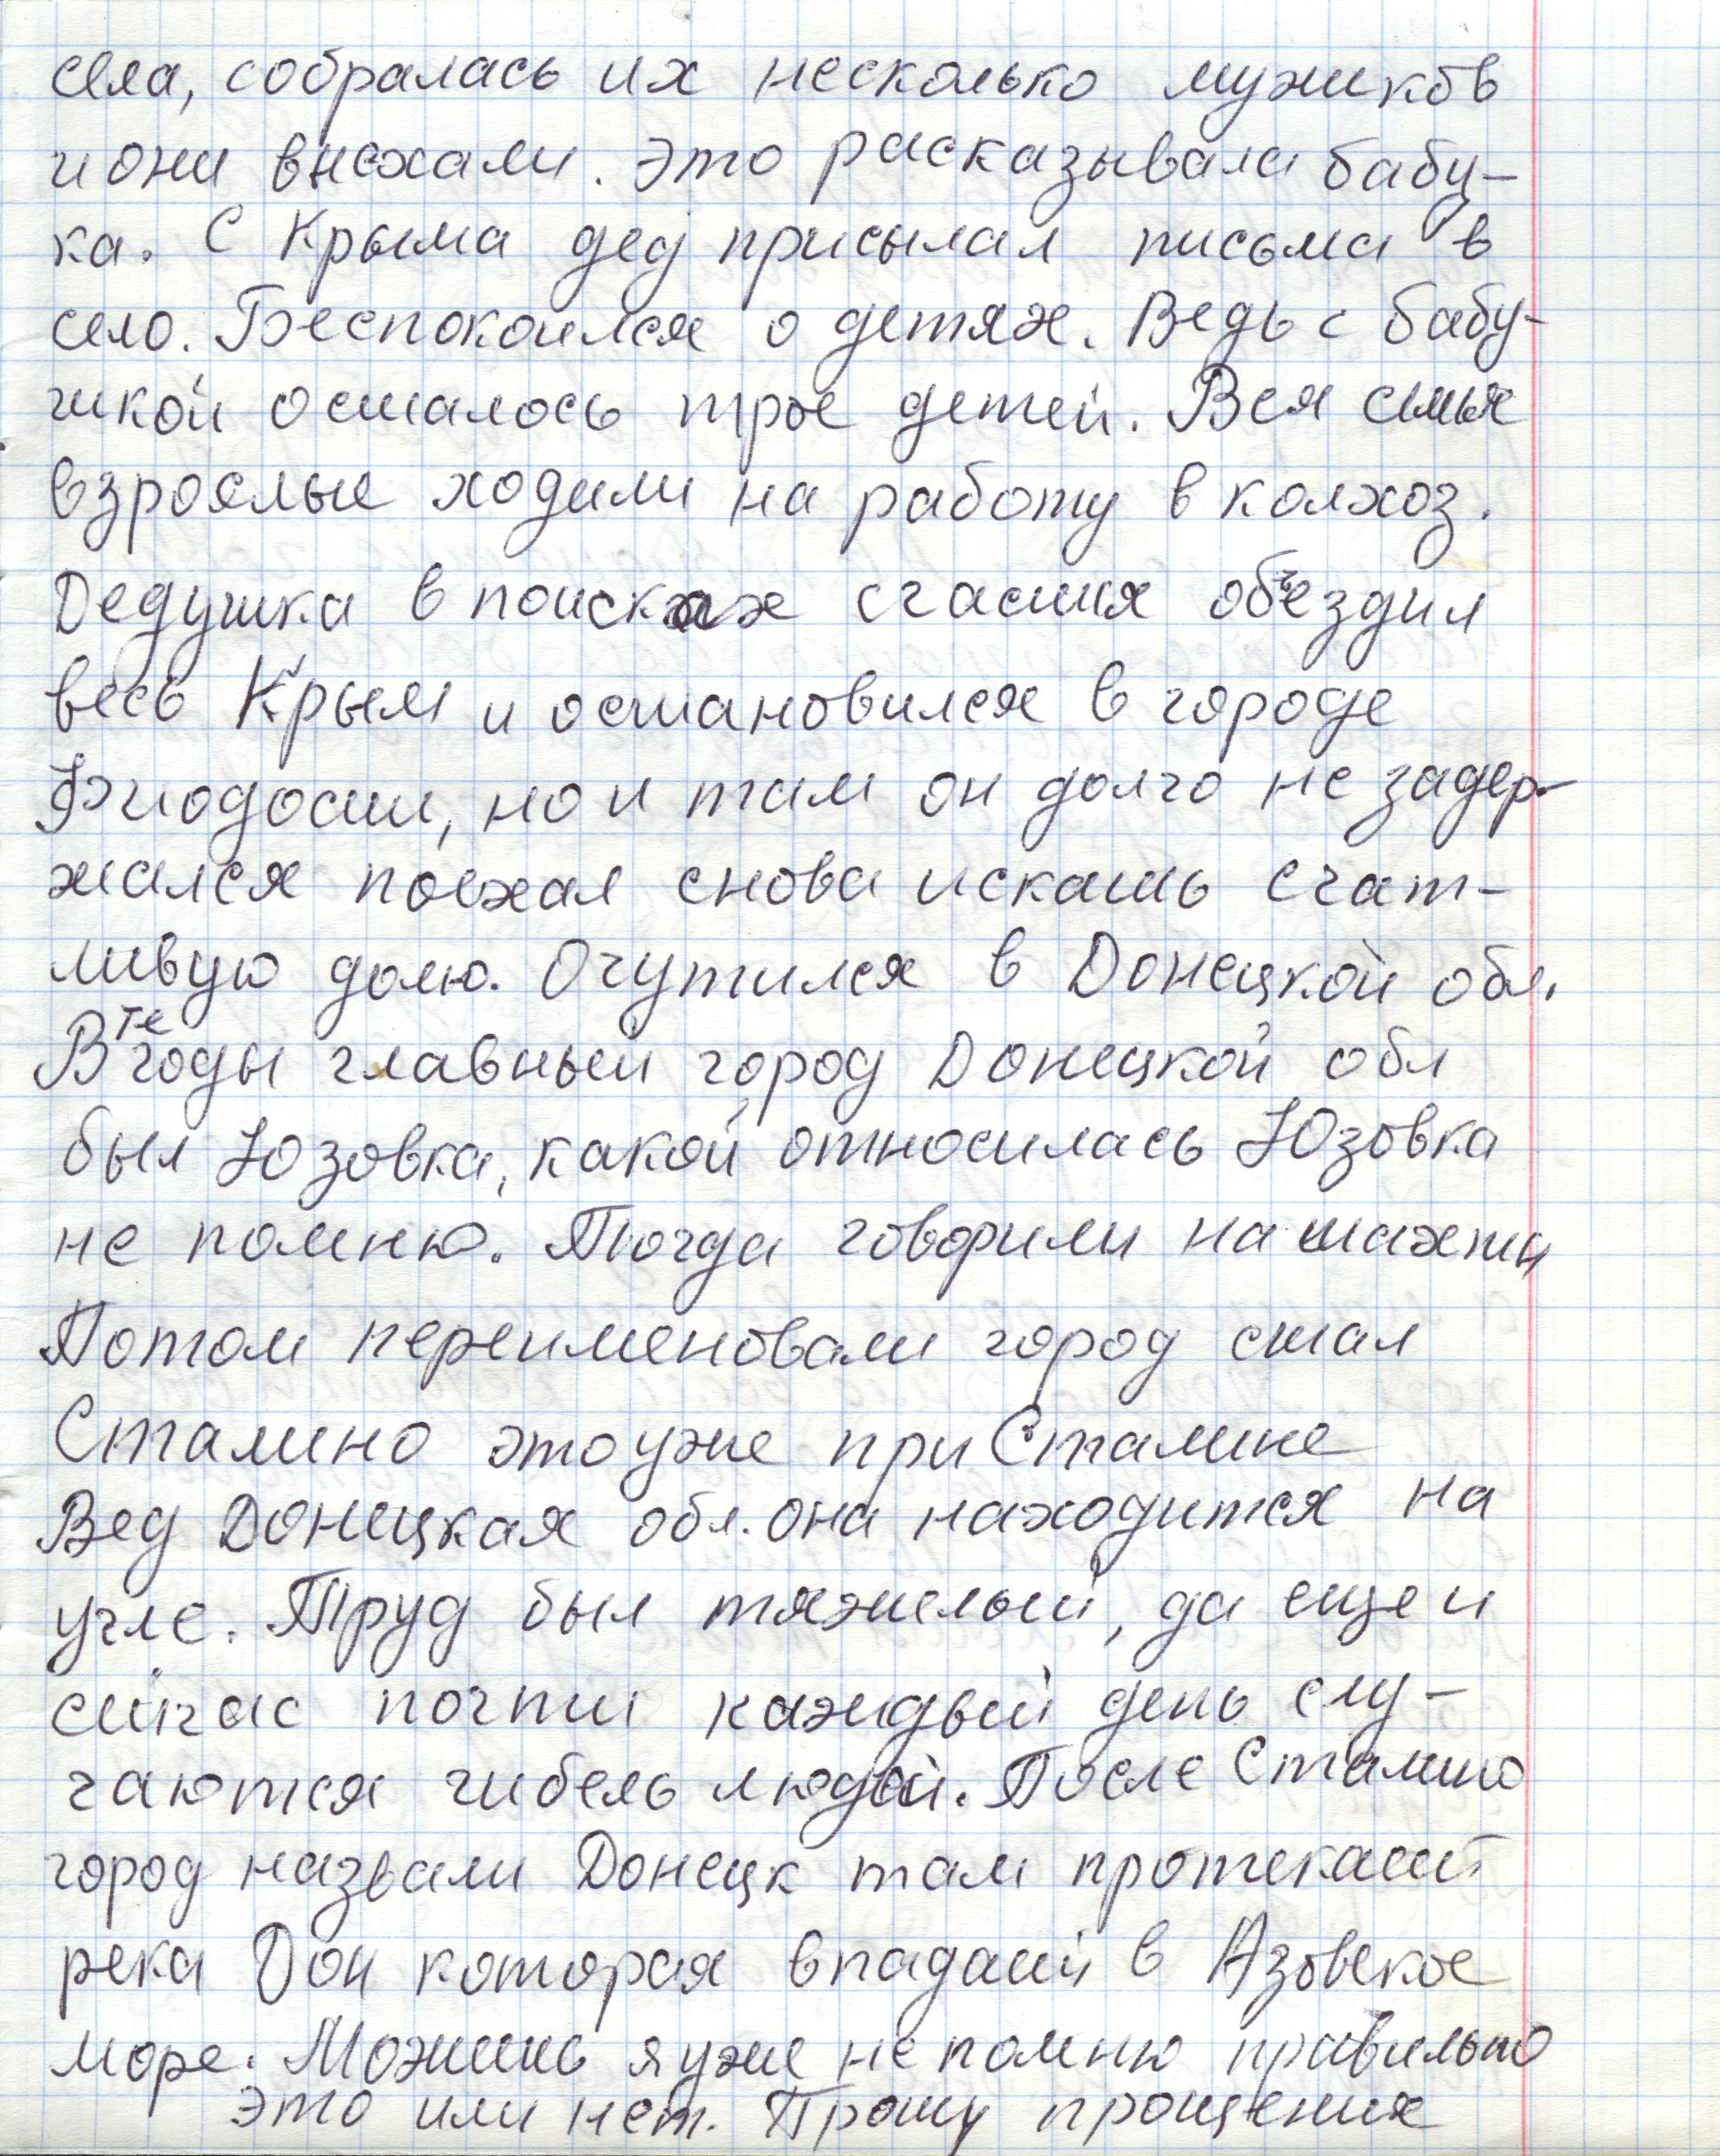 села, собралась их несколько мужиков
и они виехали. Это расказывала бабу-
ка. С Крыма дед присылал письма в
село. Беспокоился о детях. Ведь с бабу-
шкой осталось трое детей. Вся семья
взрослые ходили на работу в колхоз.
Дедушка в поисках счастия объездил
весь Крым и остановился в городе
Фиодосии, но и там он долго не задер-
жался поехал снова искать счат-
ливую долю. Очутился в Донецкой обл.
В те годы главный город Донецкой обл
был Юзовка, какой относилась Юзовка
не помню. Тогда говорили на шахти
Потом переименовали город стал
Сталино это уже при Сталине
Вед Донецкая обл. она находится на
угле. Труд был тяжелый, да еще и
сейчас почти каждый день слу-
чаются гибель людей. После Сталино
город назвали Донецк там протекает
река Дон которая впадает в Азовское
море. Можить я уже не помню правильно
это или нет. Прошу прощения